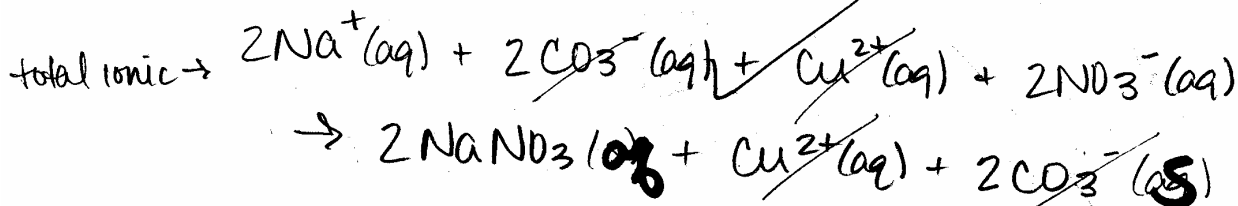 total ionic → 2Na⁺(aq) + 2CO₃⁻(aq) + Cu²⁺(aq) + 2NO₃⁻(aq)
→ 2NaNO₃(aq + Cu²⁺(aq) + 2CO₃⁻(s)